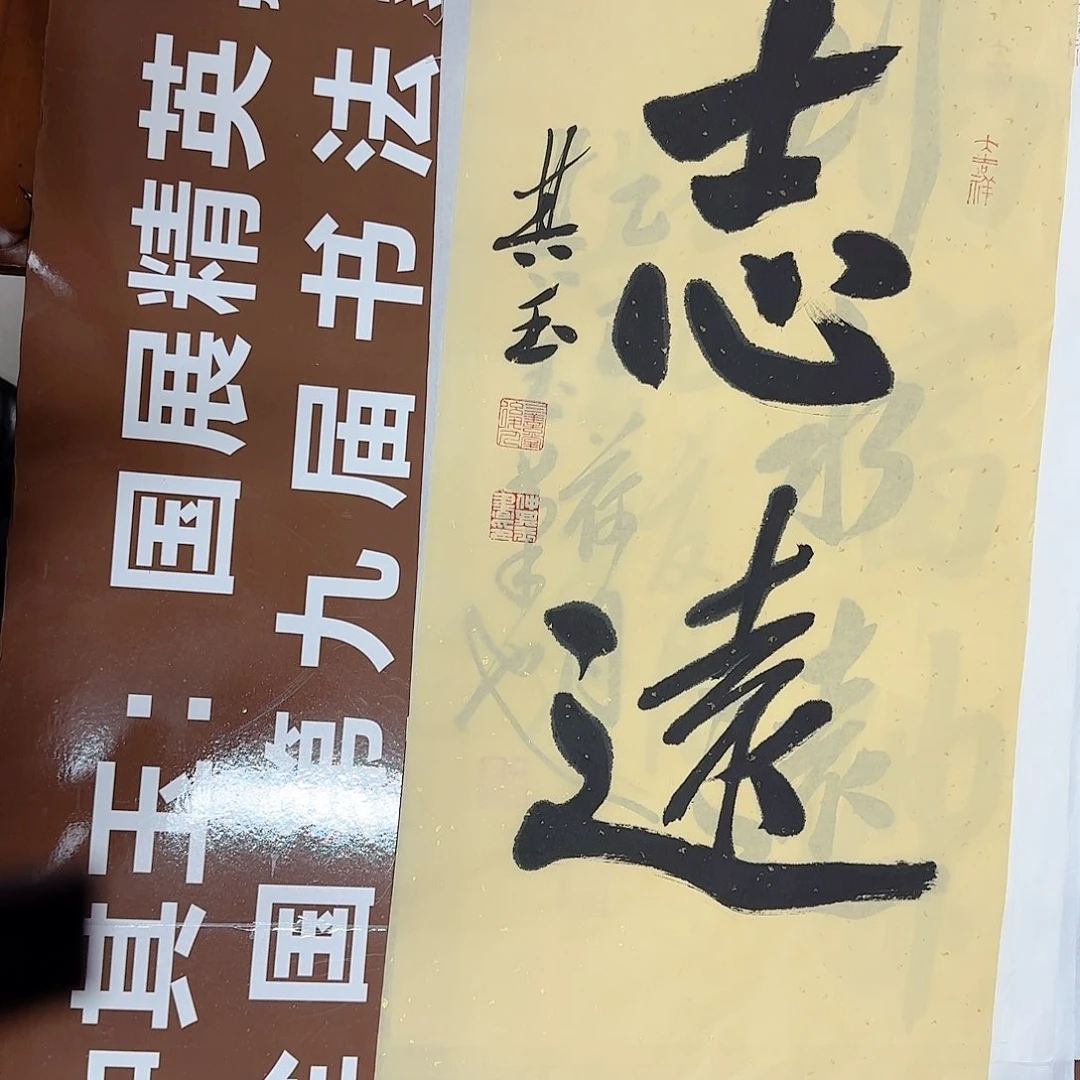 志遠
其玉
大吉祥
其玉:国展精英
国第九届书法